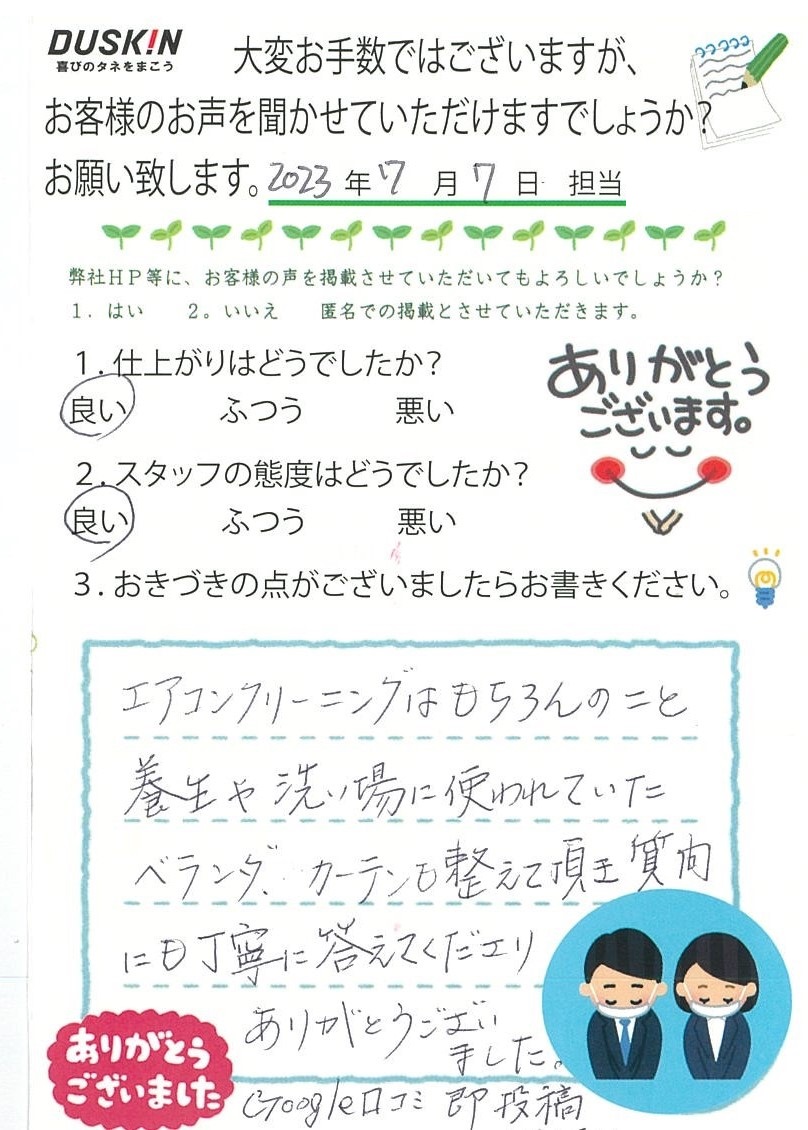 DUSK!N
喜びのタネをまこう
大変お手数ではございますが、
お客様のお声を聞かせていただけますでしょうか?
お願い致します。2023年7月7日 担当
弊社HP等に、お客様の声を掲載させていただいてもよろしいでしょうか?
1. はい 2。いいえ 匿名での掲載とさせていただきます。
1.仕上がりはどうでしたか?
良い ふつう 悪い
ありがとう
ございます。
2.スタッフの態度はどうでしたか?
良い ふつう 悪い
3.おきづきの点がございましたらお書きください。
エアコンクリーニングはもちろんのこと
養生や洗い場に使われていた
ベランダ、カーテンも整えて頂き質問
にも丁寧に答えてくださり
ありがとうござい
ました。
Google口コミ 即投稿
ありがとう
ございました